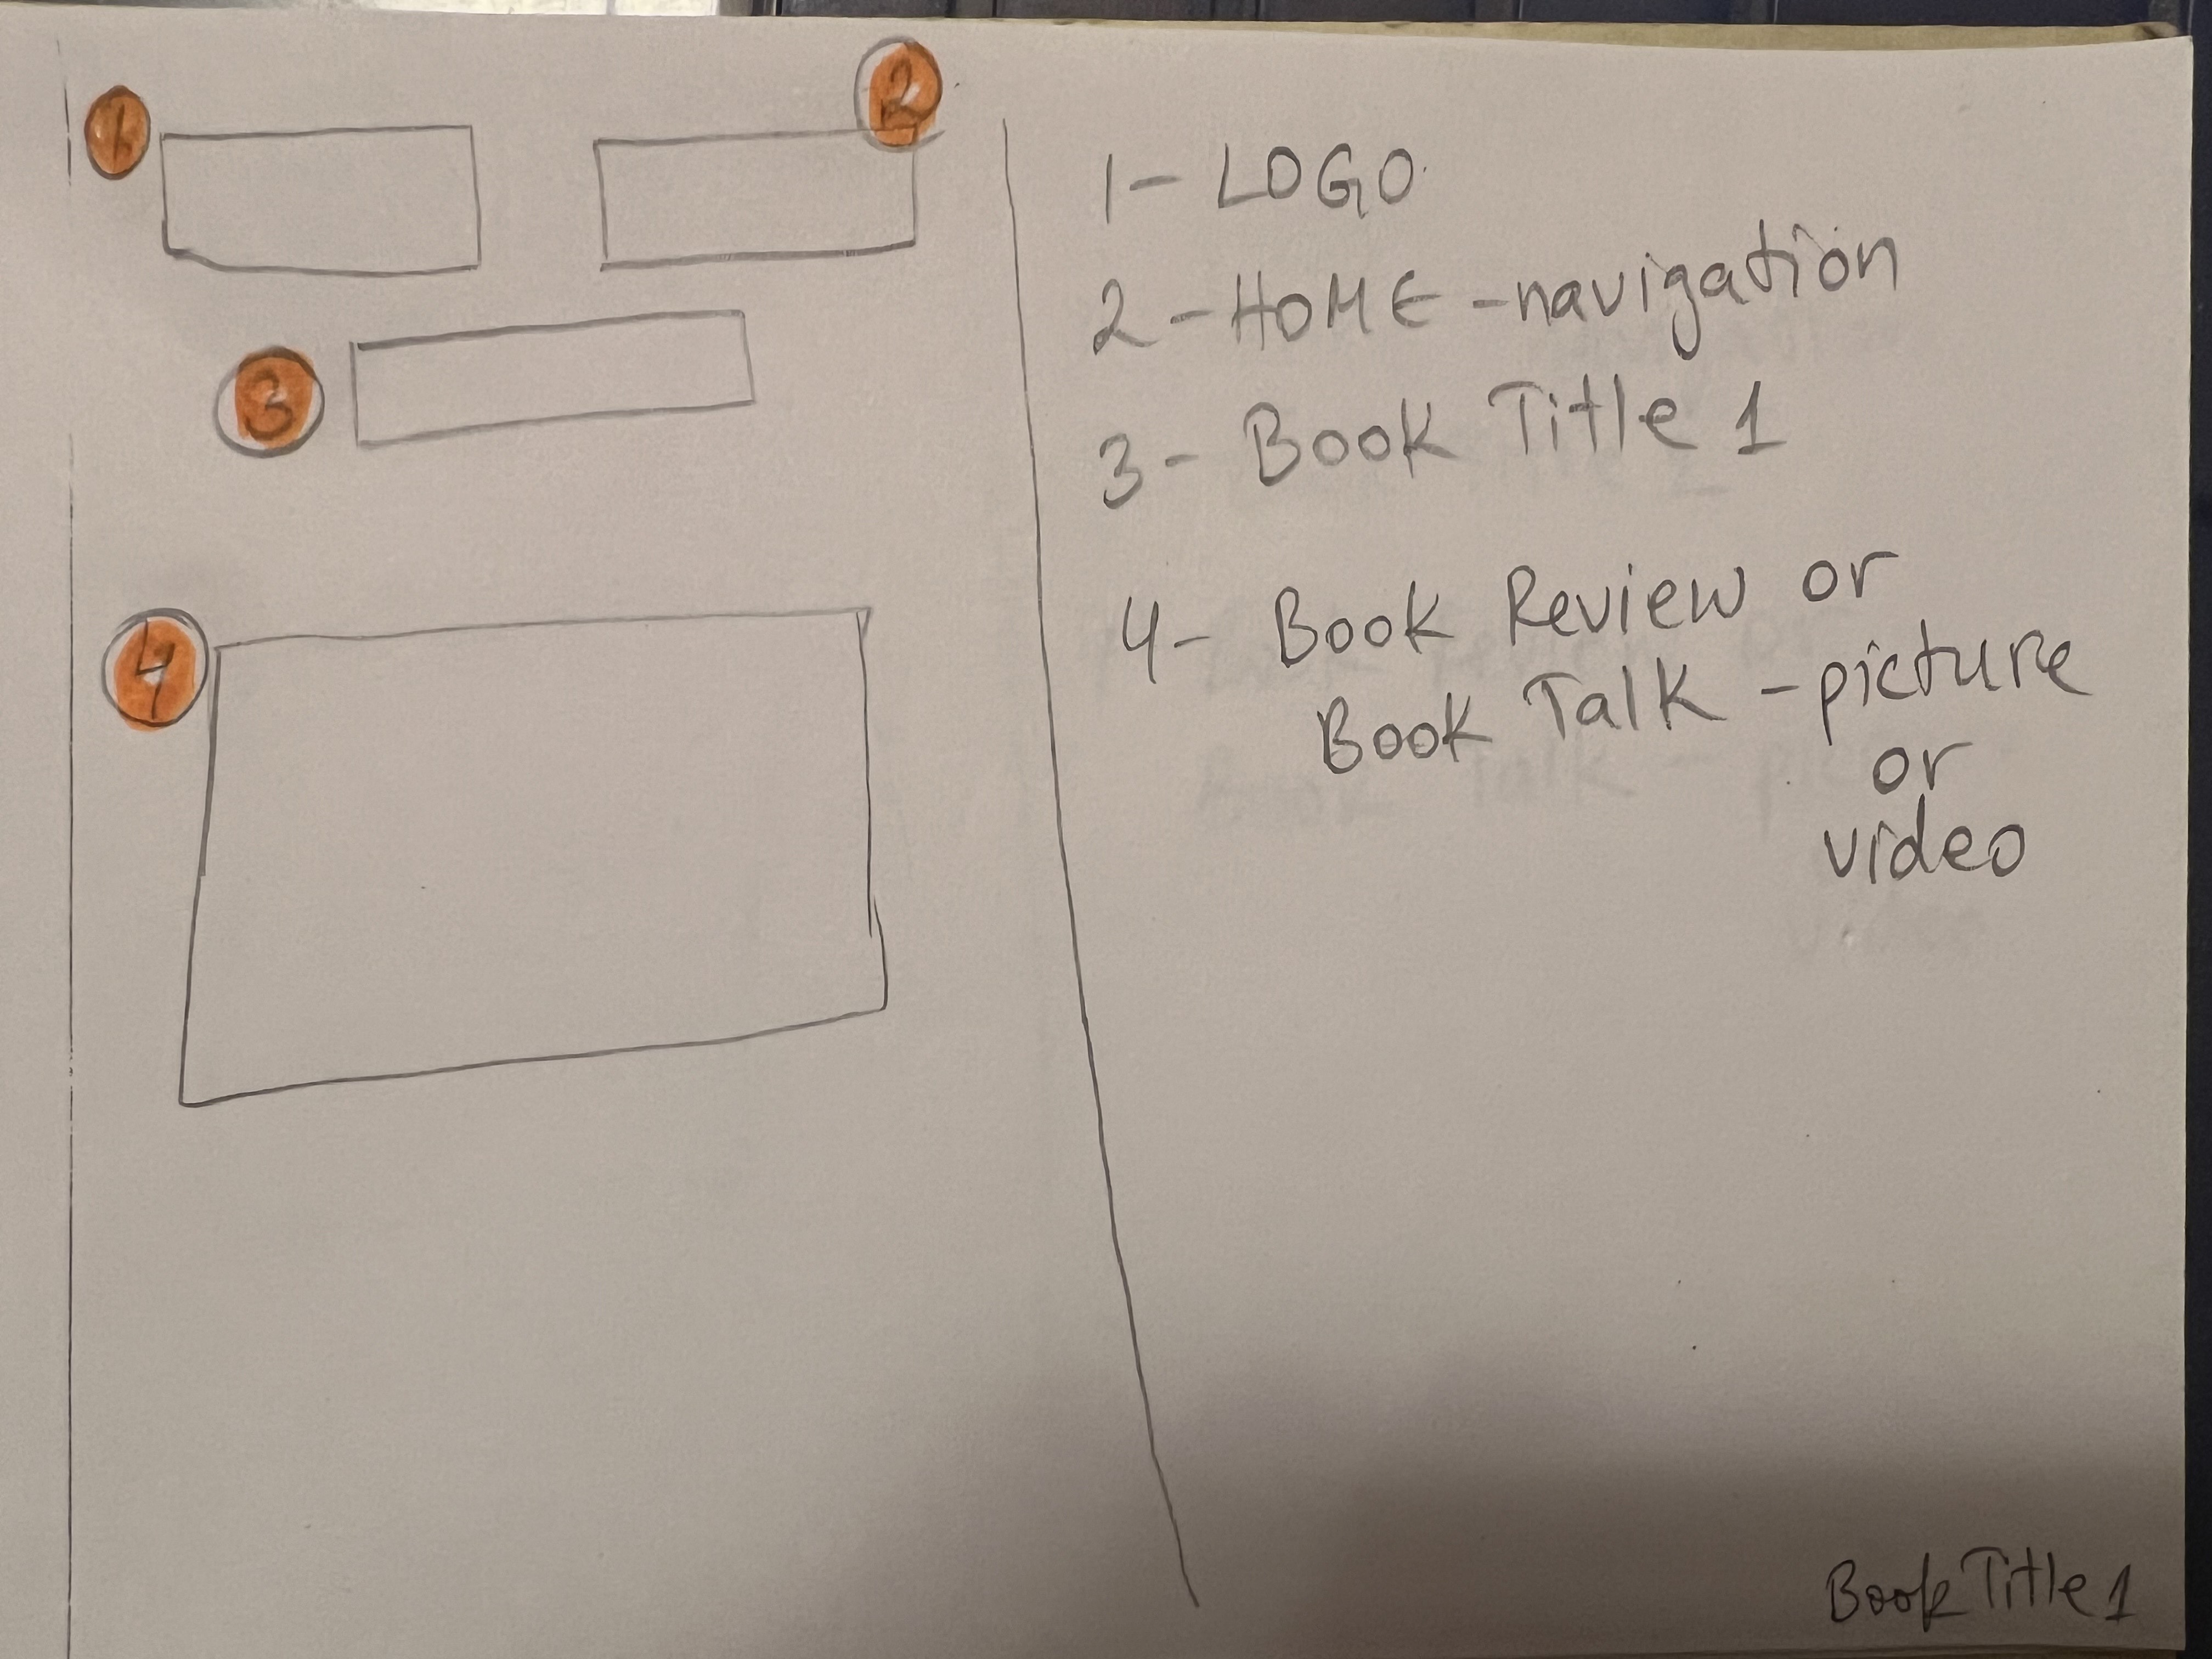 1
2
3
4
1- LOGO
2-HOME-navigation
3- Book Title 1
4- Book Review or
Book Talk -picture
or
video
Book Title 1